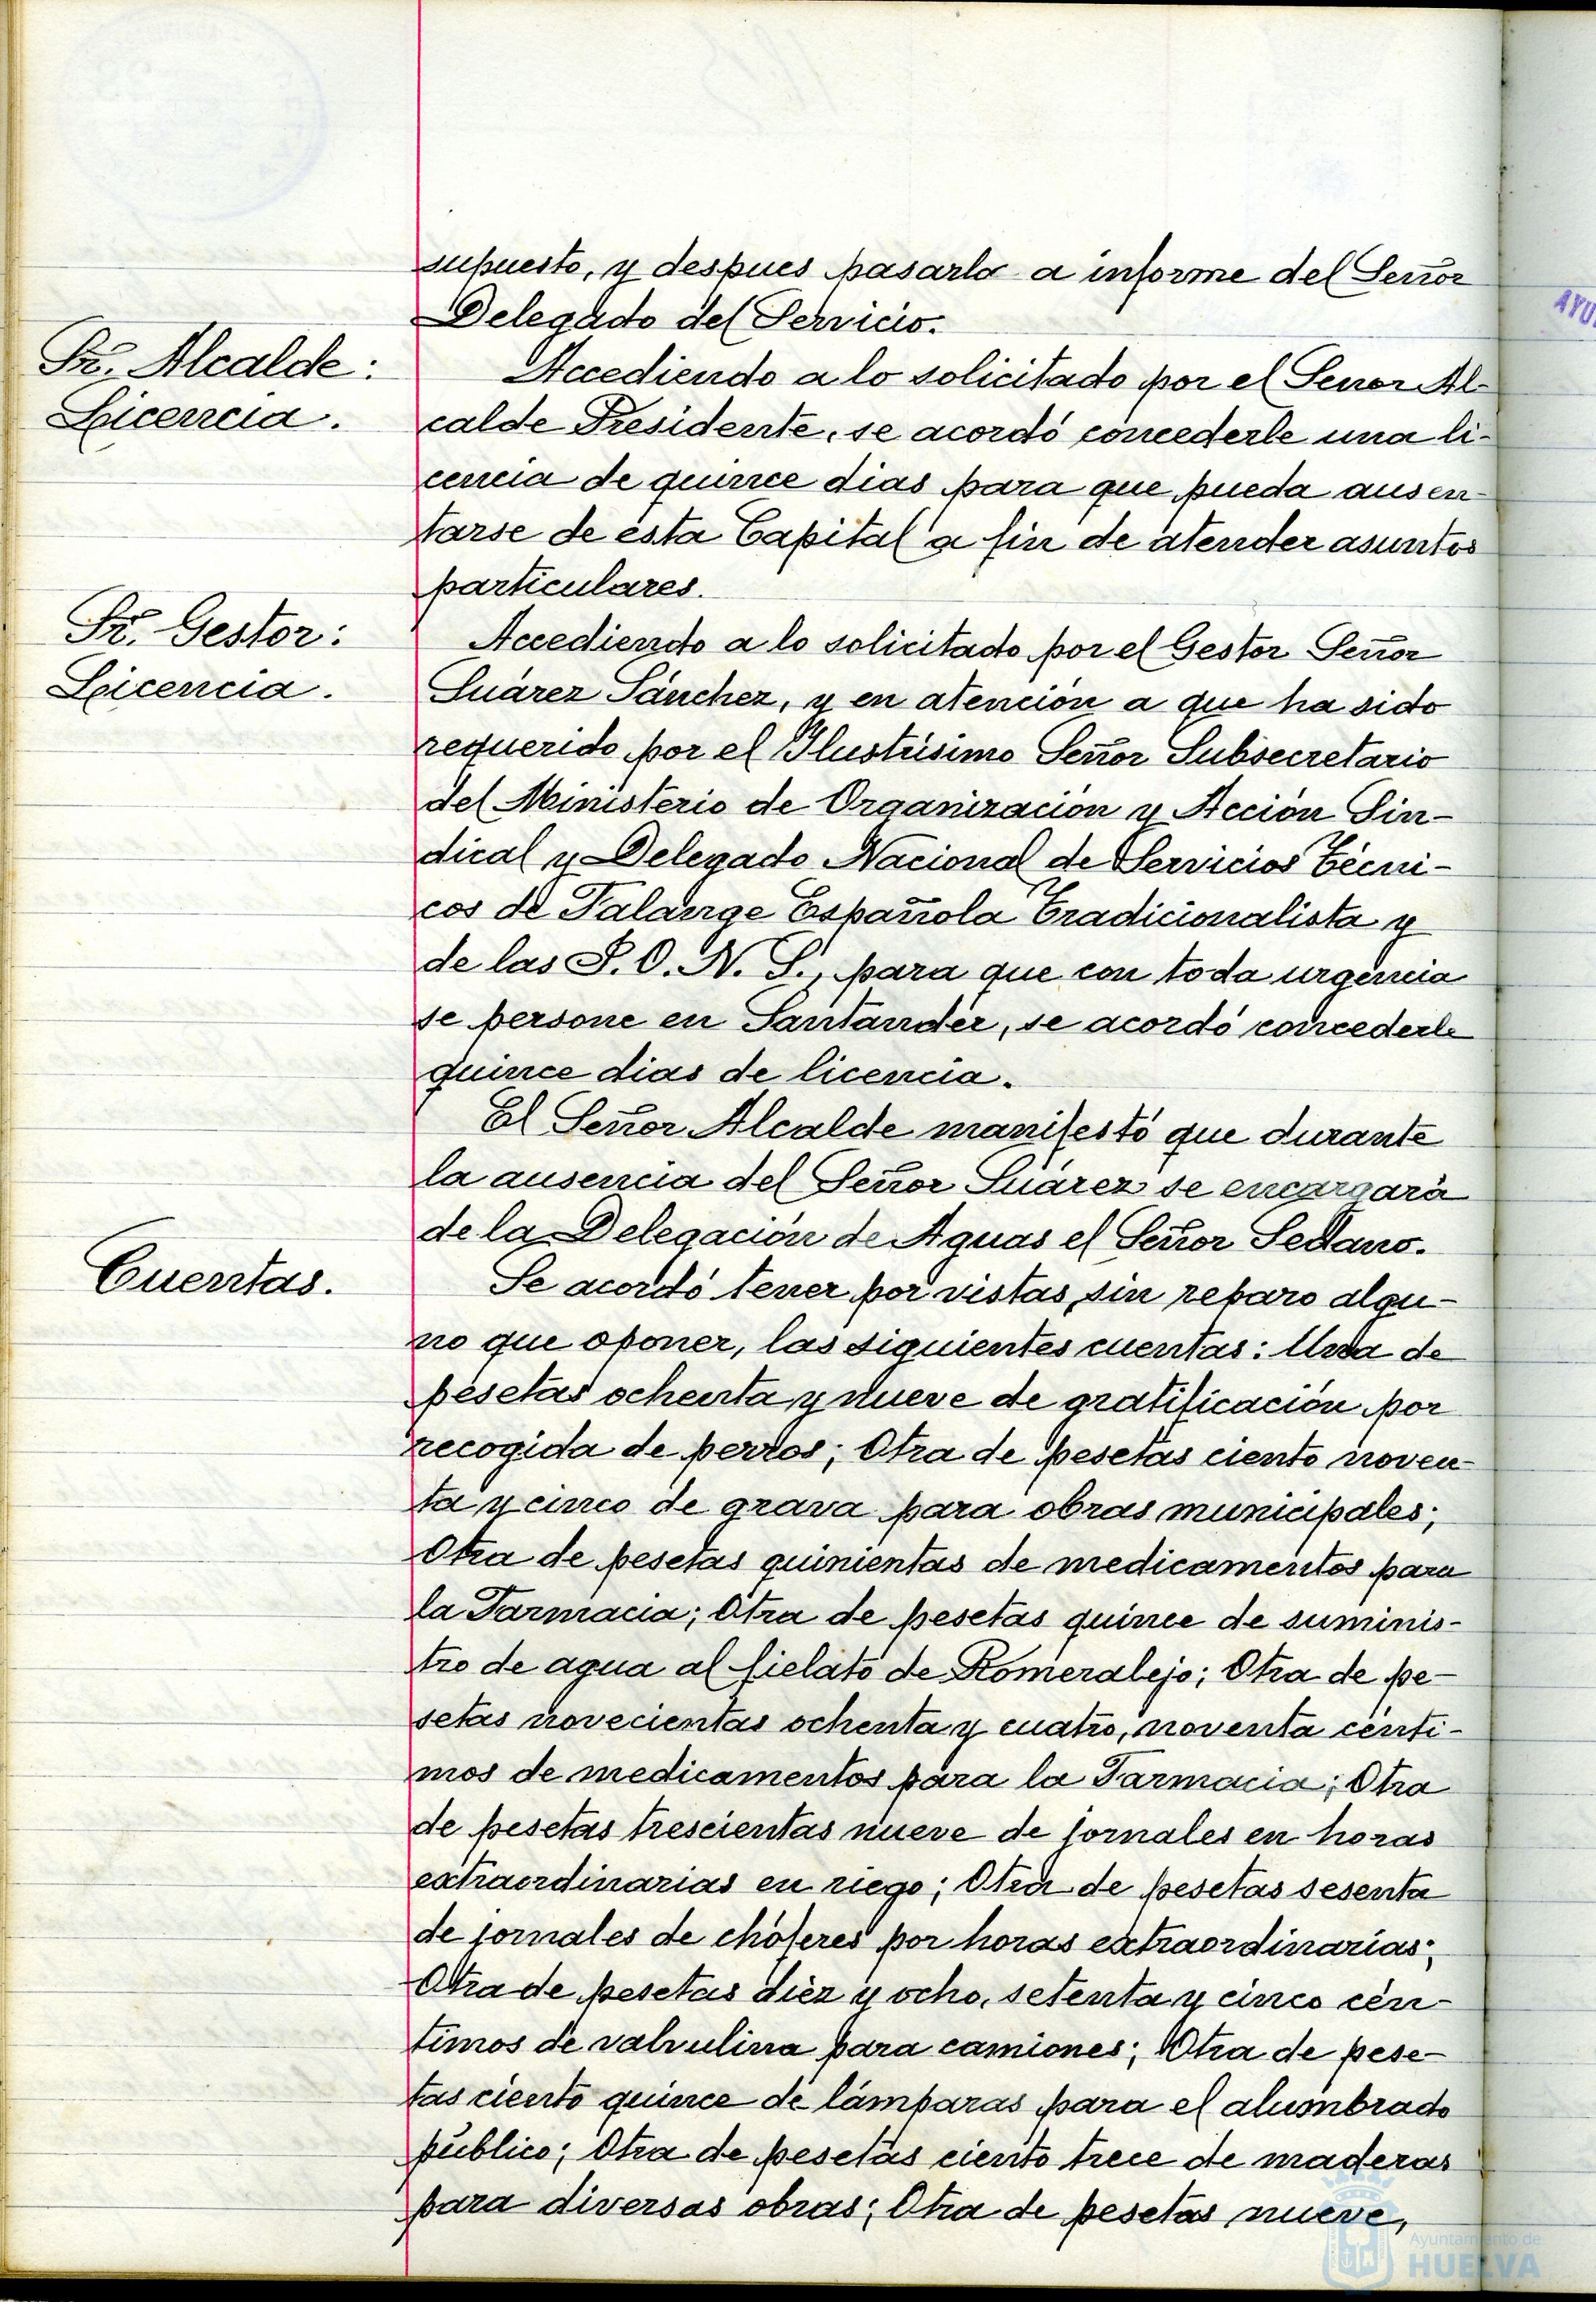 supuesto, y despues pasarlo a informe del Señor
Delegado del Servicio.
Sr. Alcalde:
Licencia.
Accediendo a lo solicitado por el Señor Al-
calde Presidente, se acordó concederle una li-
cencia de quince dias para que pueda ausen-
tarse de ésta Capital a fin de atender asuntos
particulares.
Sr. Gestor:
Licencia.
Accediendo a lo solicitado por el Gestor Señor
Suárez Sánchez, y en atención a que ha sido
requerido por el Ilustrísimo Señor Subsecretario
del Ministerio de Organización y Acción Sin-
dical y Delegado Nacional de Servicios Técni-
cos de Falange Española Tradicionalista y
de las J. O. N. S., para que con toda urgencia
se persone en Santander, se acordó concederle
quince dias de licencia.
El Señor Alcalde manifestó que durante
la ausencia del Señor Suárez se encargará
de la Delegación de Aguas el Señor Sedano.
Cuentas.
Se acordó tener por vistas, sin reparo algu-
no que oponer, las siguientes cuentas: Una de
pesetas ochenta y nueve de gratificación por
recogida de perros; Otra de pesetas ciento noven-
ta y cinco de grava para obras municipales;
Otra de pesetas quinientas de medicamentos para
la Farmacia; Otra de pesetas quince de suminis-
tro de agua al fielato de Romeralejo; Otra de pe-
setas novecientas ochenta y cuatro, noventa cénti-
mos de medicamentos para la Farmacia; Otra
de pesetas trescientas nueve de jornales en horas
extraordinarias en riego; Otra de pesetas sesenta
de jornales de chóferes por horas extraordinarias;
Otra de pesetas diez y ocho, setenta y cinco cén-
timos de valvulina para camiones; Otra de pese-
tas ciento quince de lámparas para el alumbrado
público; Otra de pesetas ciento trece de maderas
para diversas obras; Otra de pesetas nueve,
Ayuntamiento de
HUELVA